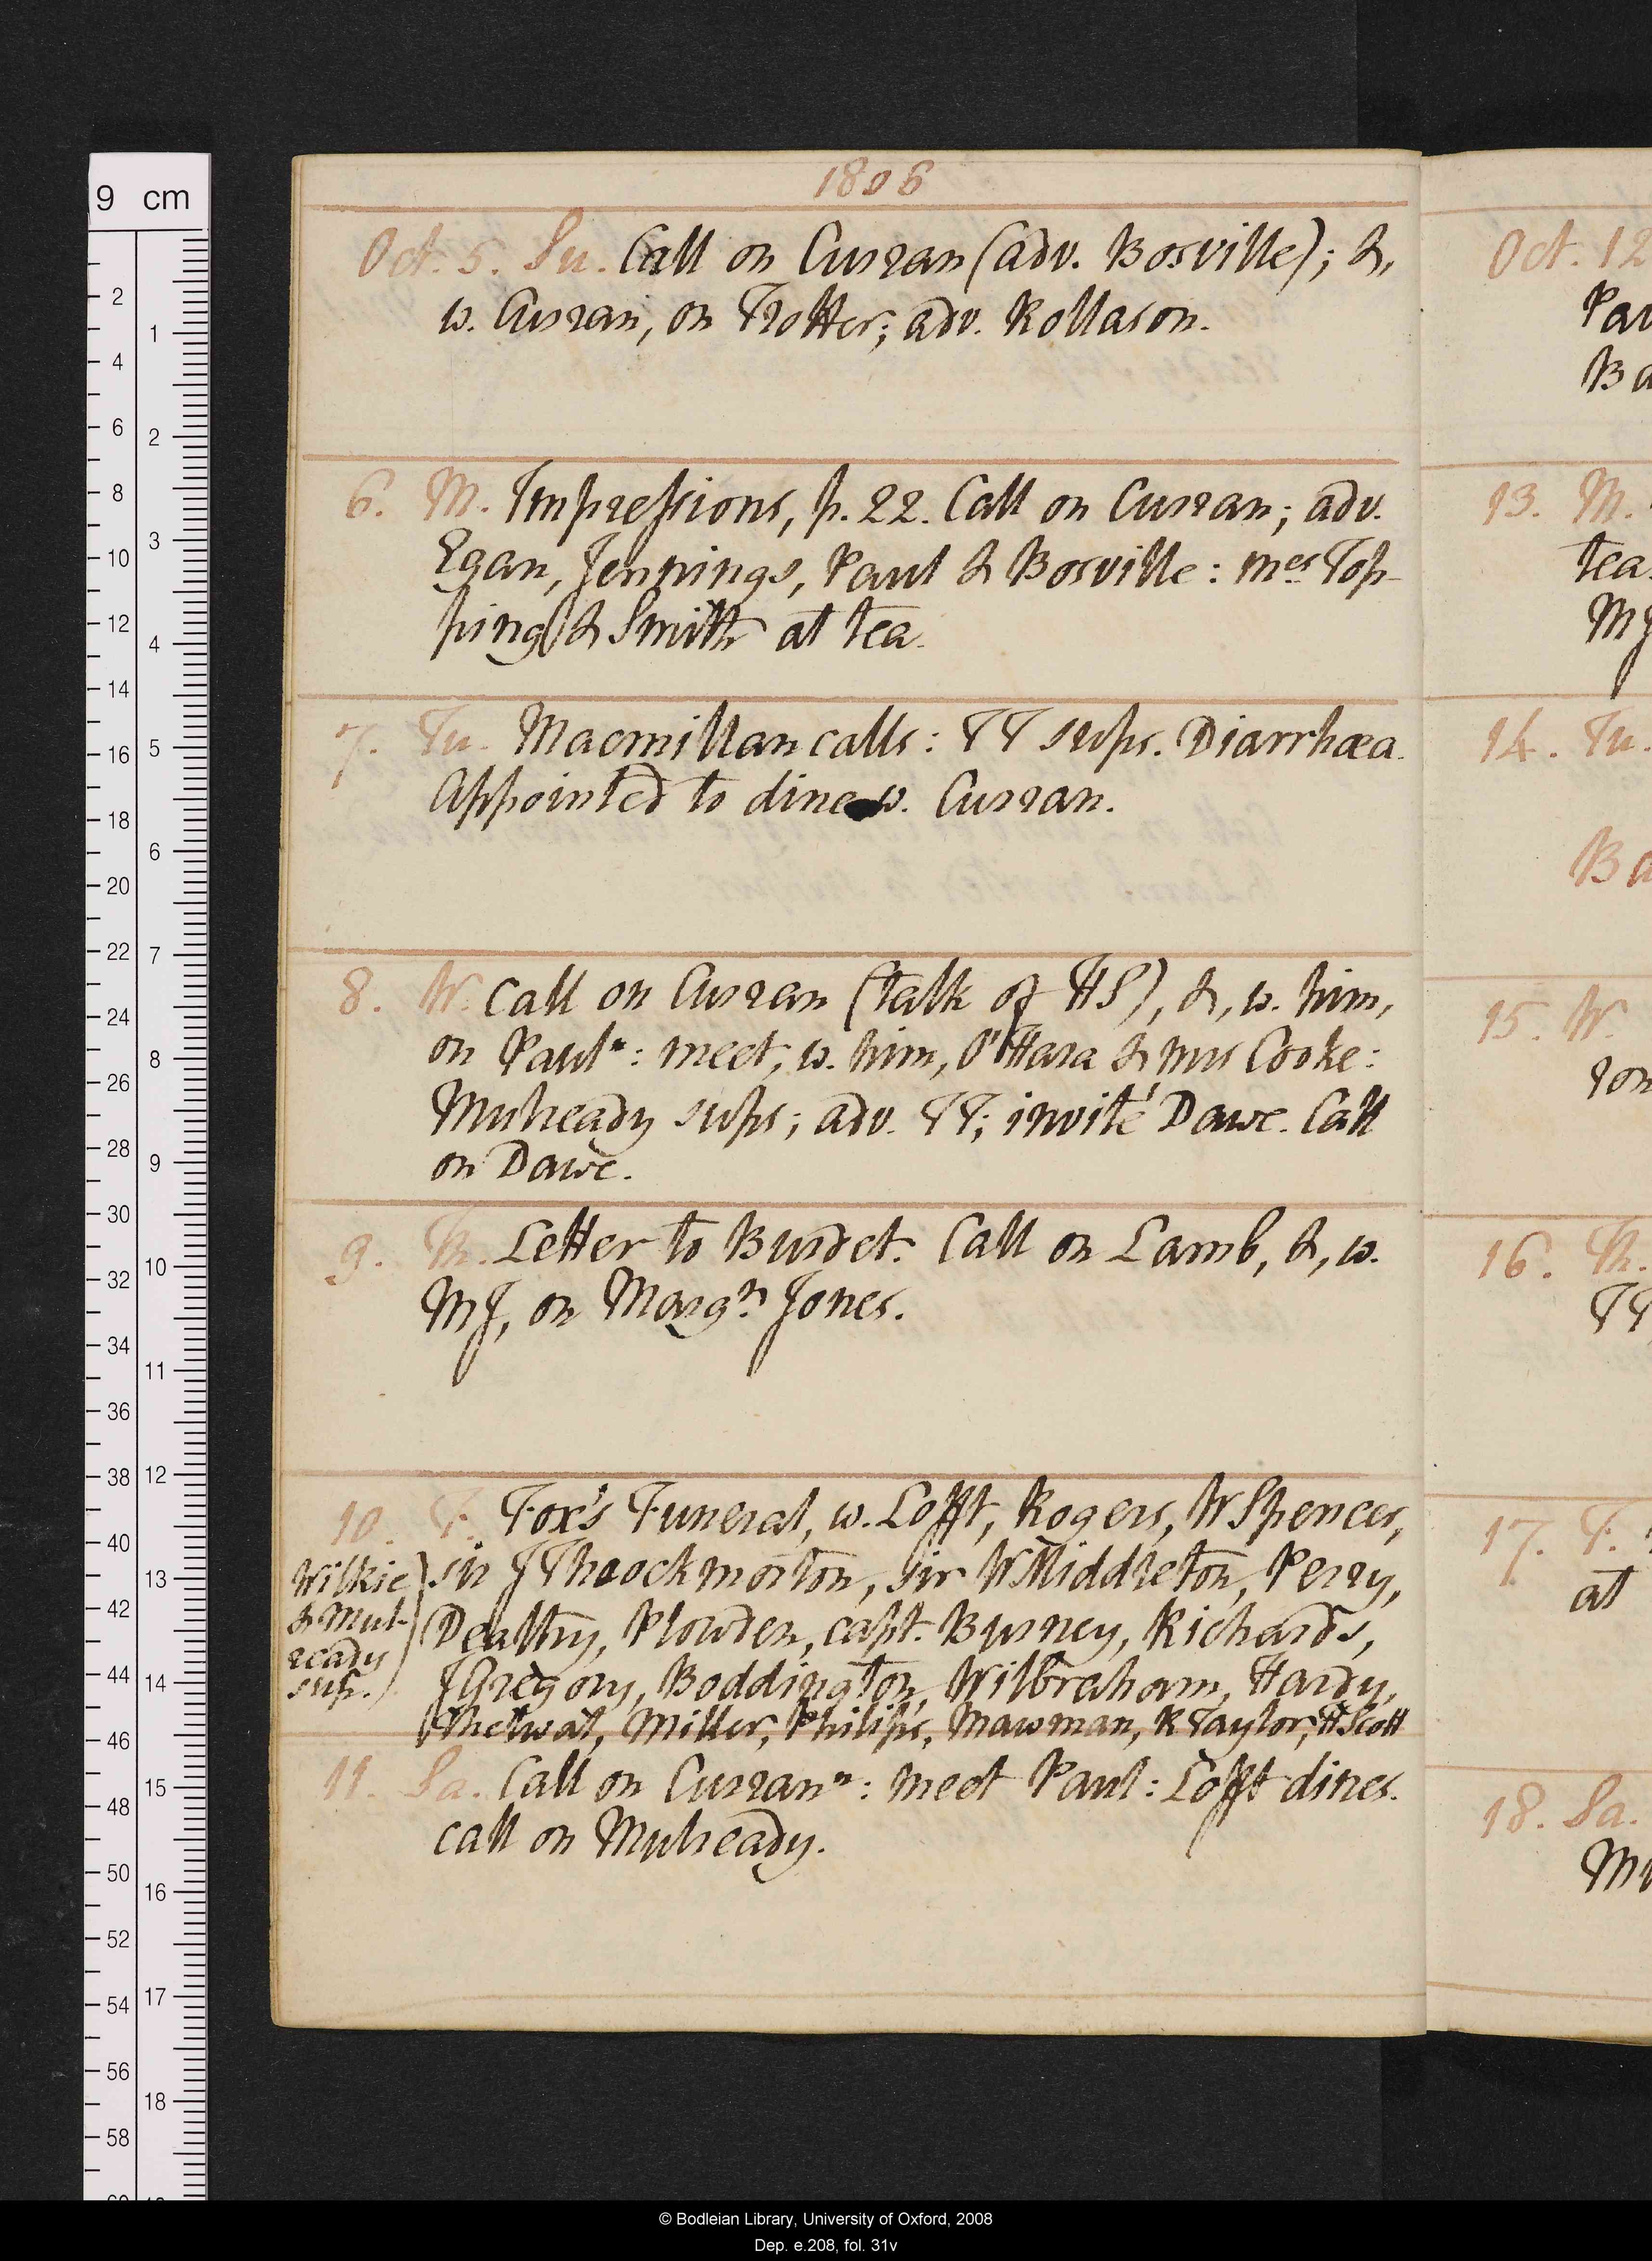 1806
Oct. 5. Su. Call on Curran (adv. Bosville); &,
w. Curran, on Trotter; adv. Rollason.
6. M. Impressions, p. 22. Call on Curran; adv.
Egan, Jennings, Paul & Bosville: mes Top-
ping & Smith at tea.
7. Tu. Macmillan calls: TT sups. Diarrhœa.
Appointed to dine w. Curran.
8. W. Call on Curran (talk of HS), &, w. him,
on Pauln: meet, w. him, O'Hara & mrs Cooke:
Mulready sups; adv. TT; invité Dawe. Call
on Dawe.
9. Th. Letter to Burdet. Call on Lamb, &, w.
MJ, on Margn. Jones.
10. F. Fox's Funeral, w. Lofft, Rogers, W Spencer,
sir J Throckmorton, sir W Middleton, Perry,
Dealtry, Plowden, capt. Burney, Richards,
J Gregory, Boddington, Wilbraham, Hardy,
Chetwat, Miller, Philips, Mawman, R Taylor, H Scott
Wilkie
& Mul-
ready
sup.
11. Sa. Call on Currann: meet Paul: Lofft dines.
call on Mulready.
Oct. 12
Pau
Ba
13. M.
tea.
MJ
14. Tu.
Ba
15. W.
ron
16. Th.
TT
17. F.
at
18. Sa.
Mu
9 cm
2
4
6
8
10
12
14
16
18
20
22
24
26
28
30
32
34
36
38
40
42
44
46
48
50
52
54
56
58
1
2
3
4
5
6
7
8
9
10
11
12
13
14
15
16
17
18
© Bodleian Library, University of Oxford, 2008
Dep. e.208, fol. 31v